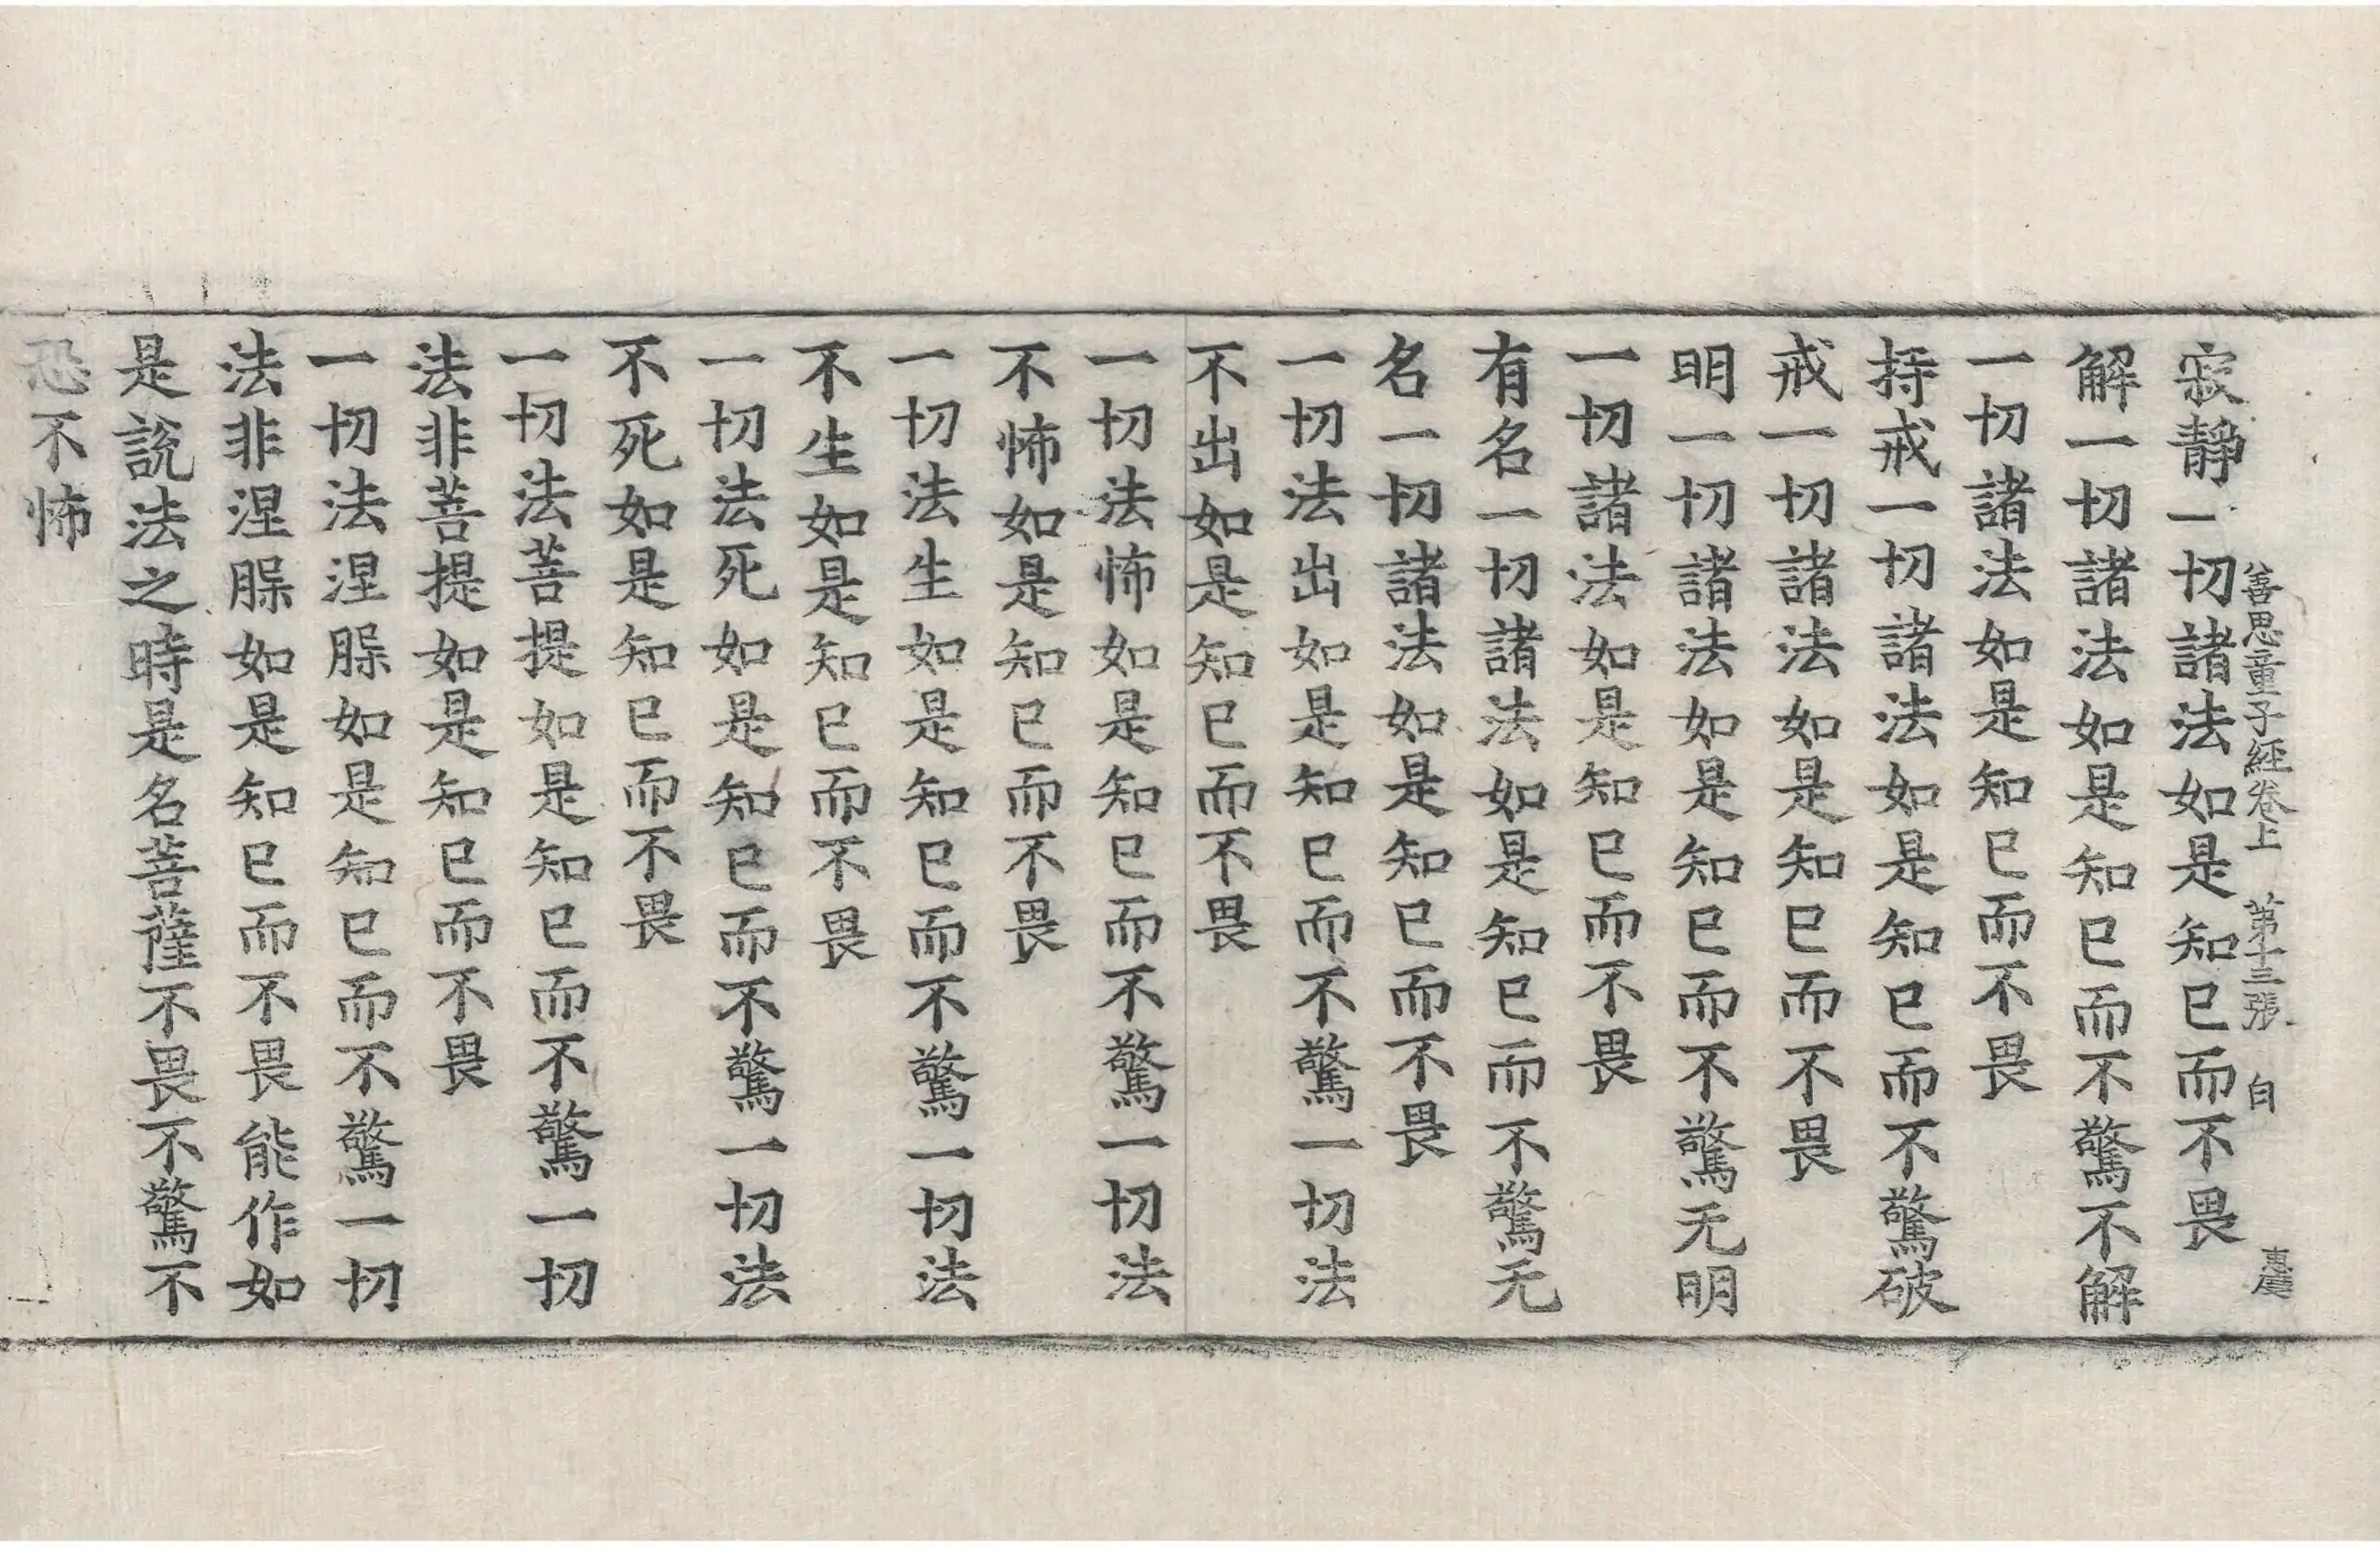 善思童子經卷上 第十三張 白
寂靜一切諸法如是知已而不畏
解一切諸法如是知已而不驚不解
一切諸法如是知已而不畏
持戒一切諸法如是知已而不驚破
戒一切諸法如是知已而不畏
明一切諸法如是知已而不驚无明
一切諸法如是知已而不畏
有名一切諸法如是知已而不驚无
名一切諸法如是知已而不畏
一切法出如是知已而不驚一切法
不出如是知已而不畏
一切法怖如是知已而不驚一切法
不怖如是知已而不畏
一切法生如是知已而不驚一切法
不生如是知已而不畏
一切法死如是知已而不驚一切法
不死如是知已而不畏
一切法菩提如是知已而不驚一切
法非菩提如是知已而不畏
一切法涅槃如是知已而不驚一切
法非涅槃如是知已而不畏能作如
是說法之時是名菩薩不畏不驚不
恐不怖